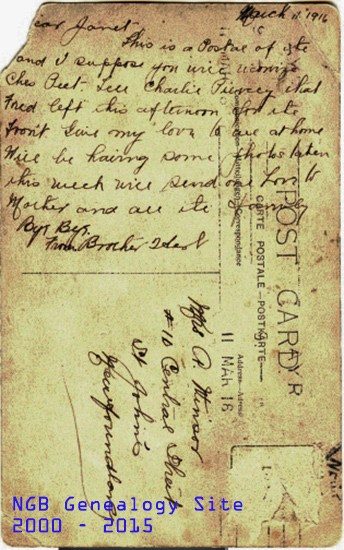 March 11 1916
ear Janet
This is a Postal of the
and I suppose you will reconize
Ches Peet. Tell Charlie Piercey that
Fred left this afternoon for the
Front Give my love to all at home
Will be having some photos taken
this week will send one Love to
Mother and all the
Bye Bye.
From Brother
Mrs A
#10 Central Street
St John's
Newfoundland
POST CARD
CARTE POSTALE—POSTKARTE
Correspondence
Address—Adresse
11 MAR 16
NGB Genealogy Site
2000 - 2015